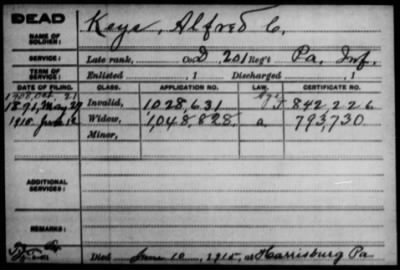 DEAD
NAME OF SOLDIER:
Keys, Alfred C.
SERVICE:
Late rank, Co. D, 201 Reg't Pa. Inf.
TERM OF SERVICE:
Enlisted , 1 Discharged , 1
DATE OF FILING. CLASS. APPLICATION NO. LAW. CERTIFICATE NO.
1891, May 29 Invalid, 1028,631 842,226
Widow, 1,048,828 a 793,730
Minor,
ADDITIONAL SERVICES:
REMARKS:
Died June 10, 1915, at Harrisburg Pa